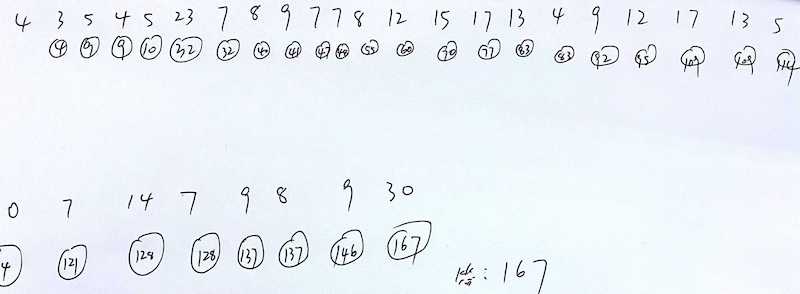 4 3 5 4 5 23 7 8 9 7 7 8 12 15 17 13 4 9 12 17 13 5
4 9 9 10 32 32 40 41 47 60 70 77 83 83 92 95 109 109
0 7 14 7 9 8 9 30
4 121 128 128 137 137 146 167
167